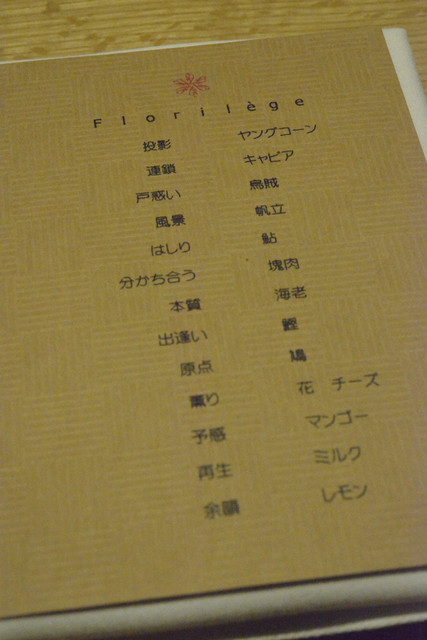 Florilège
投影 ヤングコーン
連鎖 キャビア
戸惑い 烏賊
風景 帆立
はしり 鮎
分かち合う 塊肉
本質 海老
出逢い 鰹
原点 鳩
薫り 花 チーズ
予感 マンゴー
再生 ミルク
余韻 レモン